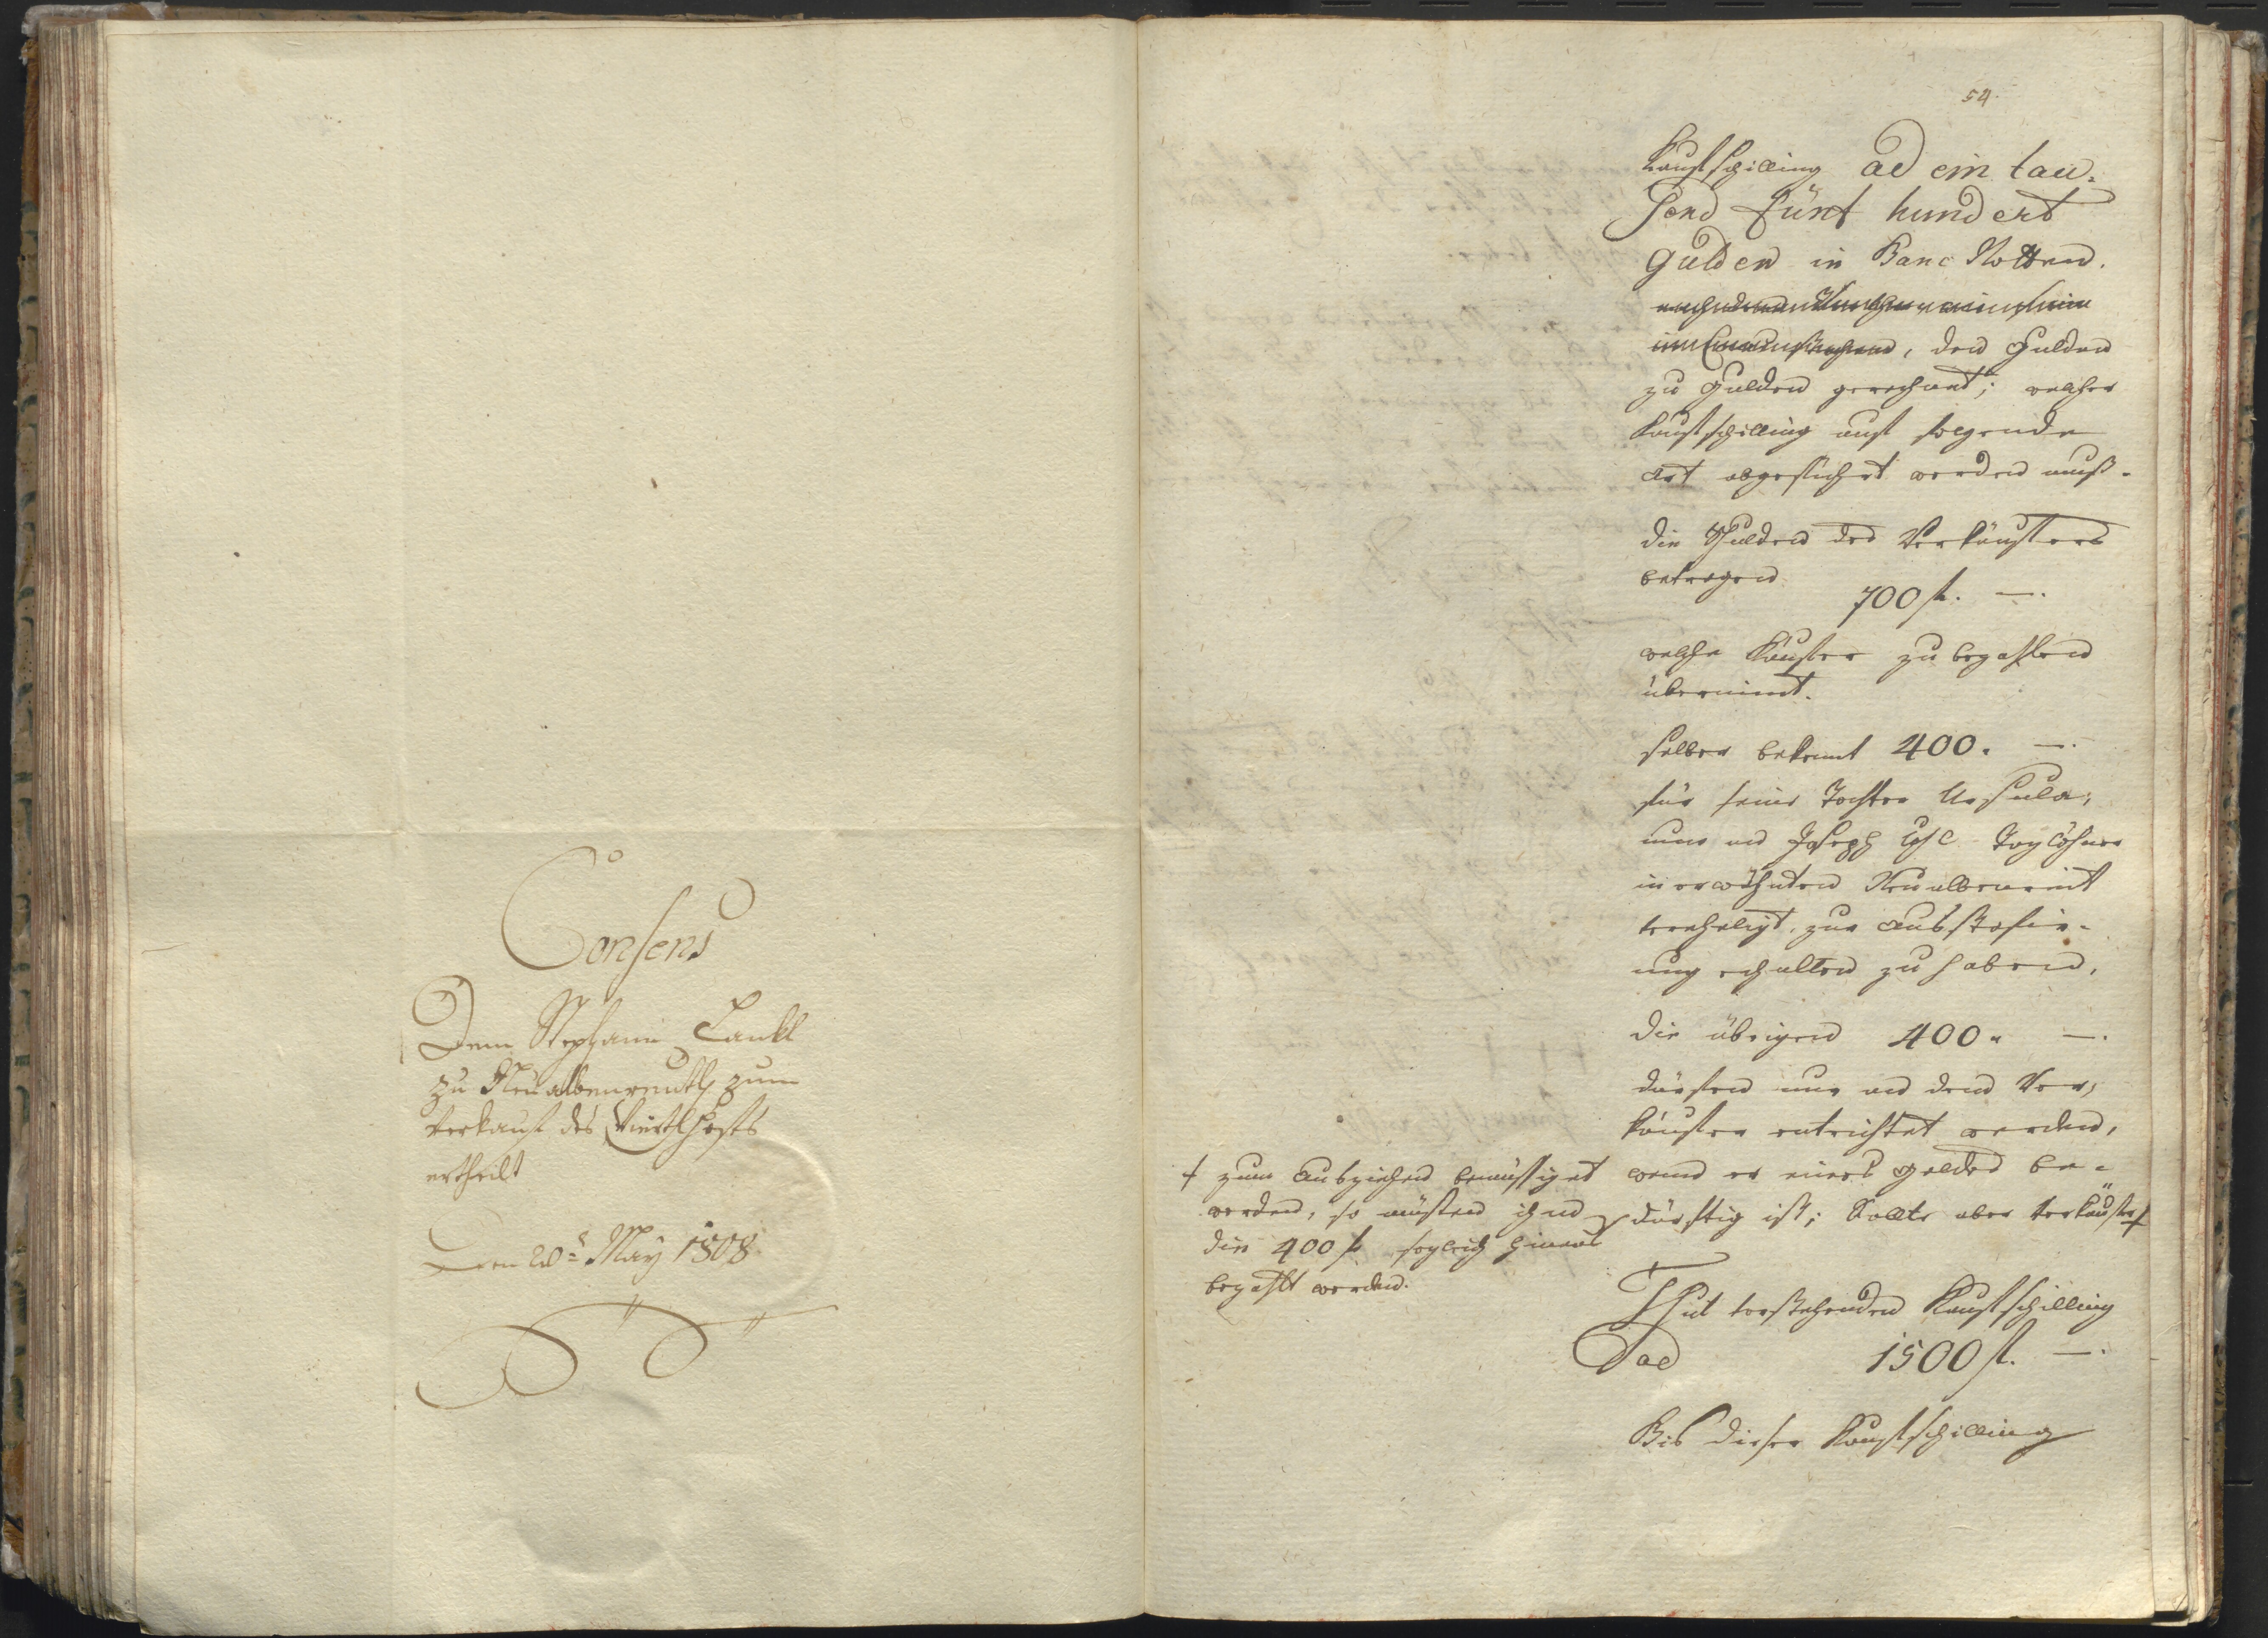 Consens
Dem Stephann Lankl
zu Neualbenreuth zum
Verkauf des Viertlhofs
ertheilt
Den 20t May 1808
54.
Kaufschilling ad ein tau-
send fünf hundert
Gulden in Banc Notten.
, den Gulden
zu Gulden gerechnet; welcher
Kaufschilling auf folgende
Art abgeführt werden muß.
die Schulden des Verkäufers
betragen
700 f. —.
welche Käufer zu bezahlen
übernimt.
selber bekennt 400. —.
für seine Tochter Ursula,
nun an Joseph Taglöhner
in erwöhnten Neualbenreut
vereheligt, zur Ausstafir-
ung erhalten zu haben,
die übrigen 400. —.
dürfen nur an den Ver-
käufer entrichtet werden,
wenn er eines Geldes be-
dürftig ist; Sollte aber Verkäufer +
+ zum Ausziehen bemüssiget
werden, so müssen ihm
die 400 f sogleich hinaus
bezahlt werden.
Thut vorstehenden Kaufschilling
ad 1500 f. —.
Bis dieser Kaufschilling